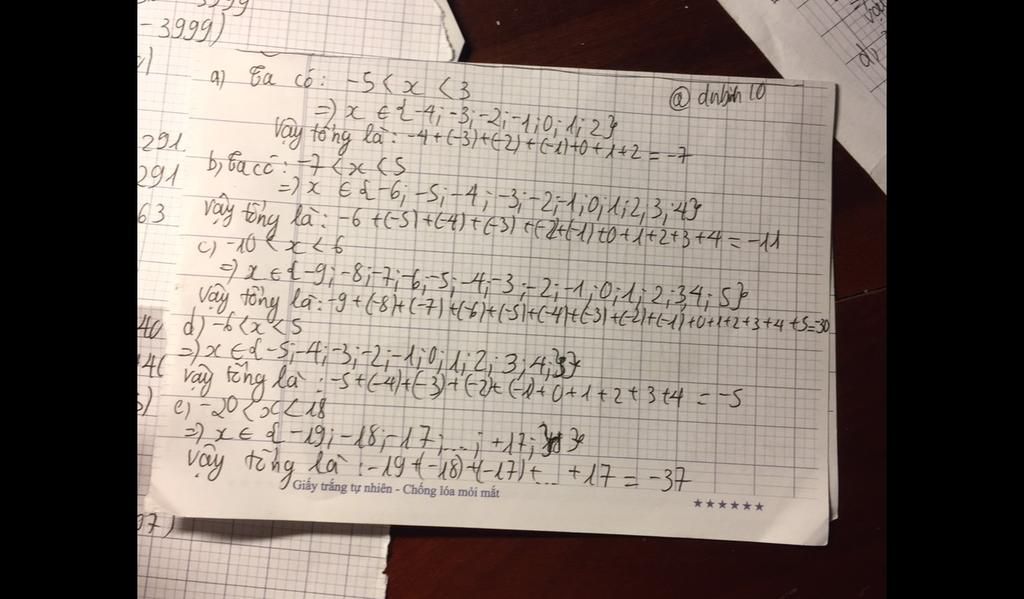 - 3999)
a) Ta có: -5 < x < 3
@ dnbinh 10
=> x ∈ { -4; -3; -2; -1; 0; 1; 2}
Vậy tổng là: -4 + (-3) + (-2) + (-1) + 0 + 1 + 2 = -7
291
b, Ta có: -7 < x < 5
291
=> x ∈ { -6; -5; -4; -3; -2; -1; 0; 1; 2; 3; 4}
63
Vậy tổng là: -6 + (-5) + (-4) + (-3) + (-2 + (-1) + 0 + 1 + 2 + 3 + 4 = -11
c) -10 < x < 6
=> x ∈ { -9; -8; -7; -6; -5; -4; -3; -2; -1; 0; 1; 2; 3, 4; 5}
Vậy tổng là: -9 + (-8) + (-7) + (-6) + (-5) + (-4) + (-3) + (-2) + (-1) + 0 + 1 + 2 + 3 + 4 + 5 = -30
40
d) -6 < x < 5
=> x ∈ { -5; -4; -3; -2; -1; 0; 1; 2; 3; 4; }
Vậy tổng là: -5 + (-4) + (-3) + (-2) + (-1 + 0 + 1 + 2 + 3 + 4 = -5
e, -20 < x < 18
=> x ∈ { -19; -18; -17; ...; +17; }
Vậy tổng là: -19 + (-18) + (-17) + ... + 17 = -37
Giấy trắng tự nhiên - Chống lóa mỏi mắt
97)